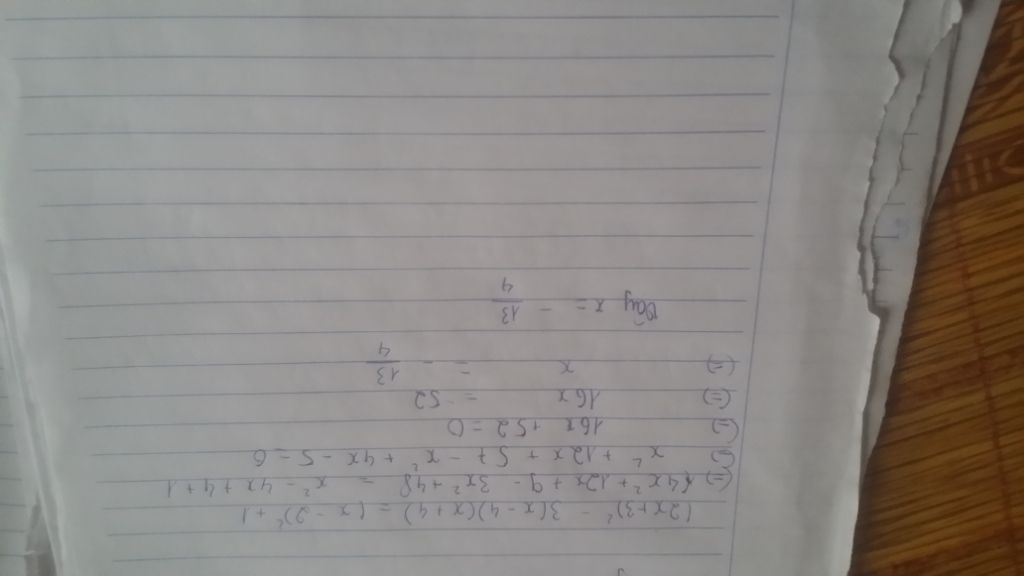 (2x+3)² - 3(x-4)(x+4) = (x-2)² + 1
(=) 4x² + 12x + 9 - 3x² + 48 = x² - 4x + 4 + 1
(=) x² + 12x + 57 - x² + 4x - 5 = 0
(=) 16x + 52 = 0
(=) 16x = -52
(=) x = - 13/4
Vậy x = - 13/4